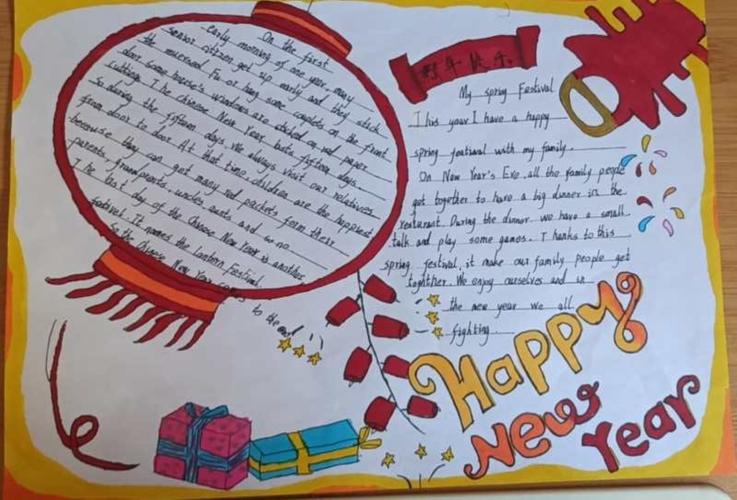 On the first
early morning of one year, many
senior citizen get up early and they stick
the reversed Fu or hang some couplets on the front
door. Some house's windows are sticked on red paper
cutting. The chinese New Year lasts fifteen days.
So during the fifteen days. We always visit our relatives
from door to door. At that time, children are the happiest
because they can get many red packets form their
parents, grandparents, uncles, aunts and so on.
The last day of the Chinese New Year is another
festival. It names the Lantern Festival.
So the Chinese New Year comes to the end.
新年快乐
My spring Festival
This year I have a happy
spring festival with my family.
On New Year's Eve, all the family people
got together to have a big dinner in the
resturant. During the dinner we have a small
talk and play some games. Thanks to this
spring festival, it make our family people get
together. We enjoy ourselves and in
the new year we all
fighting.
Happy
New
Year